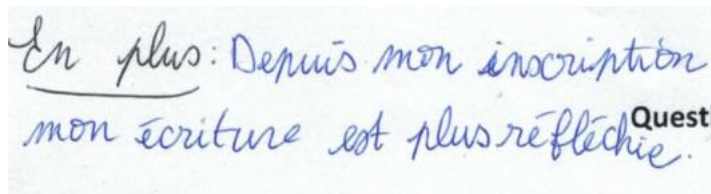 En plus: Depuis mon inscription
mon écriture est plus réfléchie.
Quest